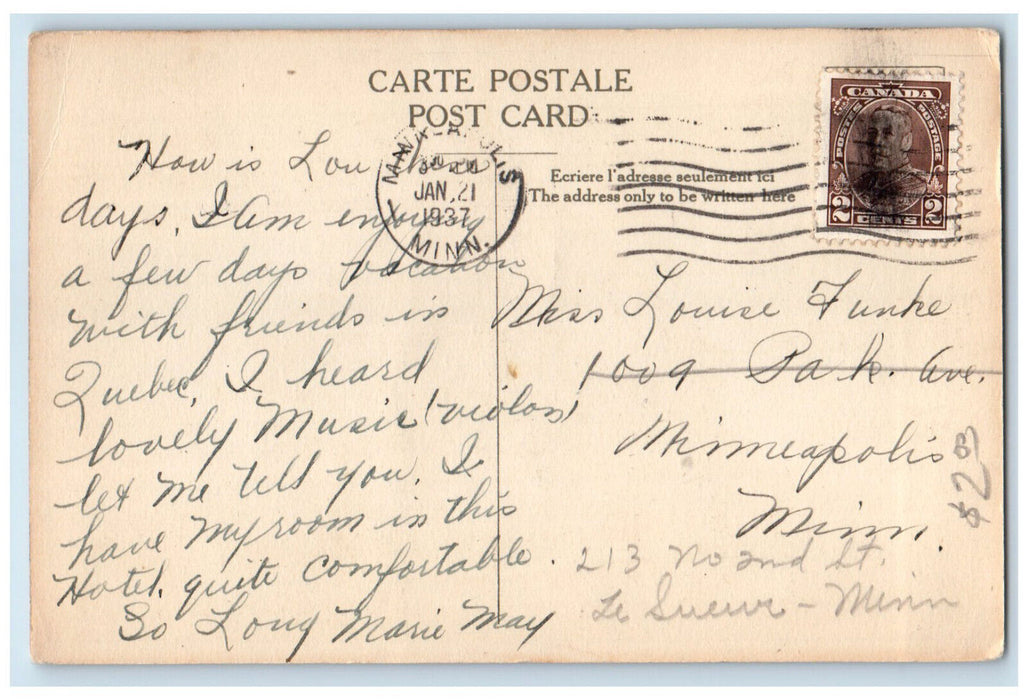 CARTE POSTALE
POST CARD
Ecriere l'adresse seulement ici
The address only to be written here
MINNEAPOLIS
JAN. 21
1937
MINN.
CANADA
POSTES POSTAGE
2 CENTS 2
How is Lou these
days, I am enjoying
a few days vacation
with friends in
Quebec, I heard
lovely Music (violon)
let me tell you. I
have my room in this
Hotel. quite comfortable.
So Long Marie May
Miss Louise Funke
1009 Park. Ave.
Minneapolis
Minn.
213 No 2nd St.
Le Sueur - Minn